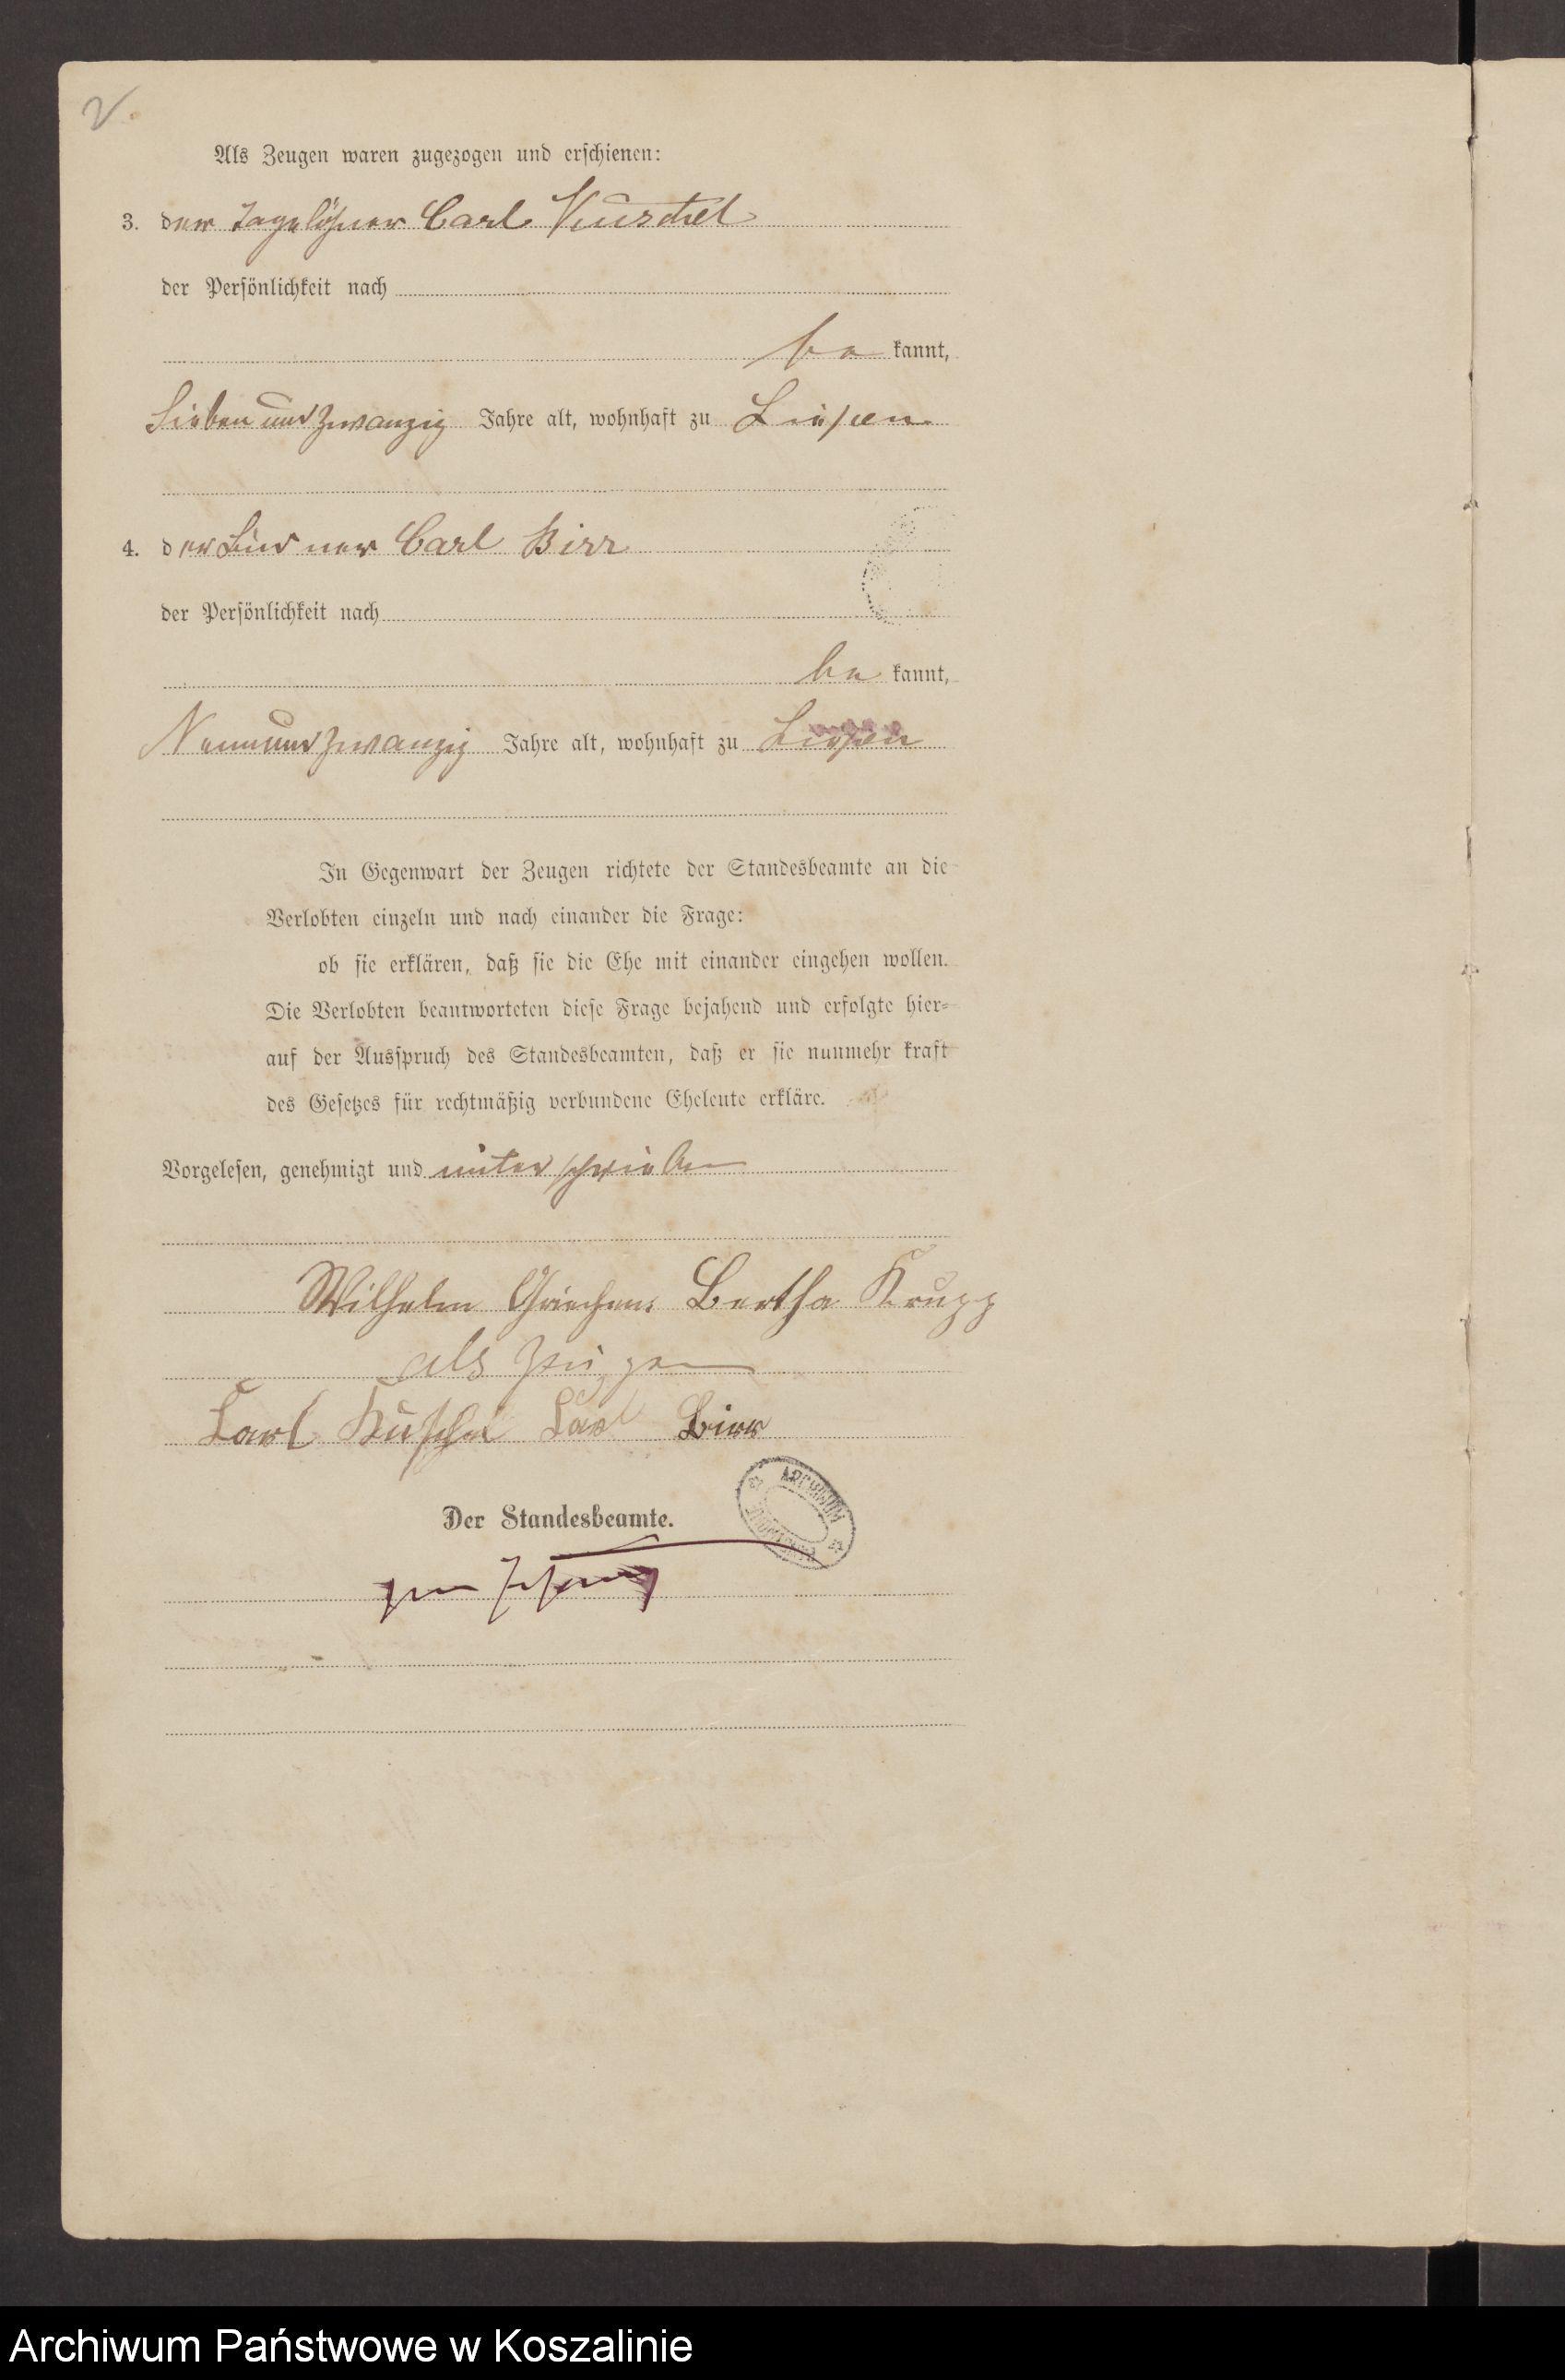 V.
Als Zeugen waren zugezogen und erschienen:
3. der Tagelöhner Carl Kuschel
der Persönlichkeit nach
be kannt,
Sieben und zwanzig Jahre alt, wohnhaft zu
4. der Carl Birr
der Persönlichkeit nach
be kannt,
Neunundzwanzig Jahre alt, wohnhaft zu
In Gegenwart der Zeugen richtete der Standesbeamte an die
Verlobten einzeln und nach einander die Frage:
ob sie erklären, daß sie die Ehe mit einander eingehen wollen.
Die Verlobten beantworteten diese Frage bejahend und erfolgte hier-
auf der Ausspruch des Standesbeamten, daß er sie nunmehr kraft
des Gesetzes für rechtmäßig verbundene Eheleute erkläre.
Vorgelesen, genehmigt und unterschrieben
Wilhelm Bertha Krupp
als Zeugen
Carl Kuschel Carl Birr
Der Standesbeamte.
ARCHIWUM
Archiwum Państwowe w Koszalinie